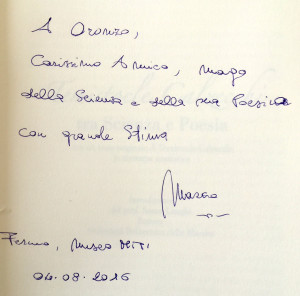 A Oronzo,
Carissimo Amico, mago
della Scienza e della sua Poesia
con grande Stima
Marco
Fermo, Museo MITI
04.08.2016